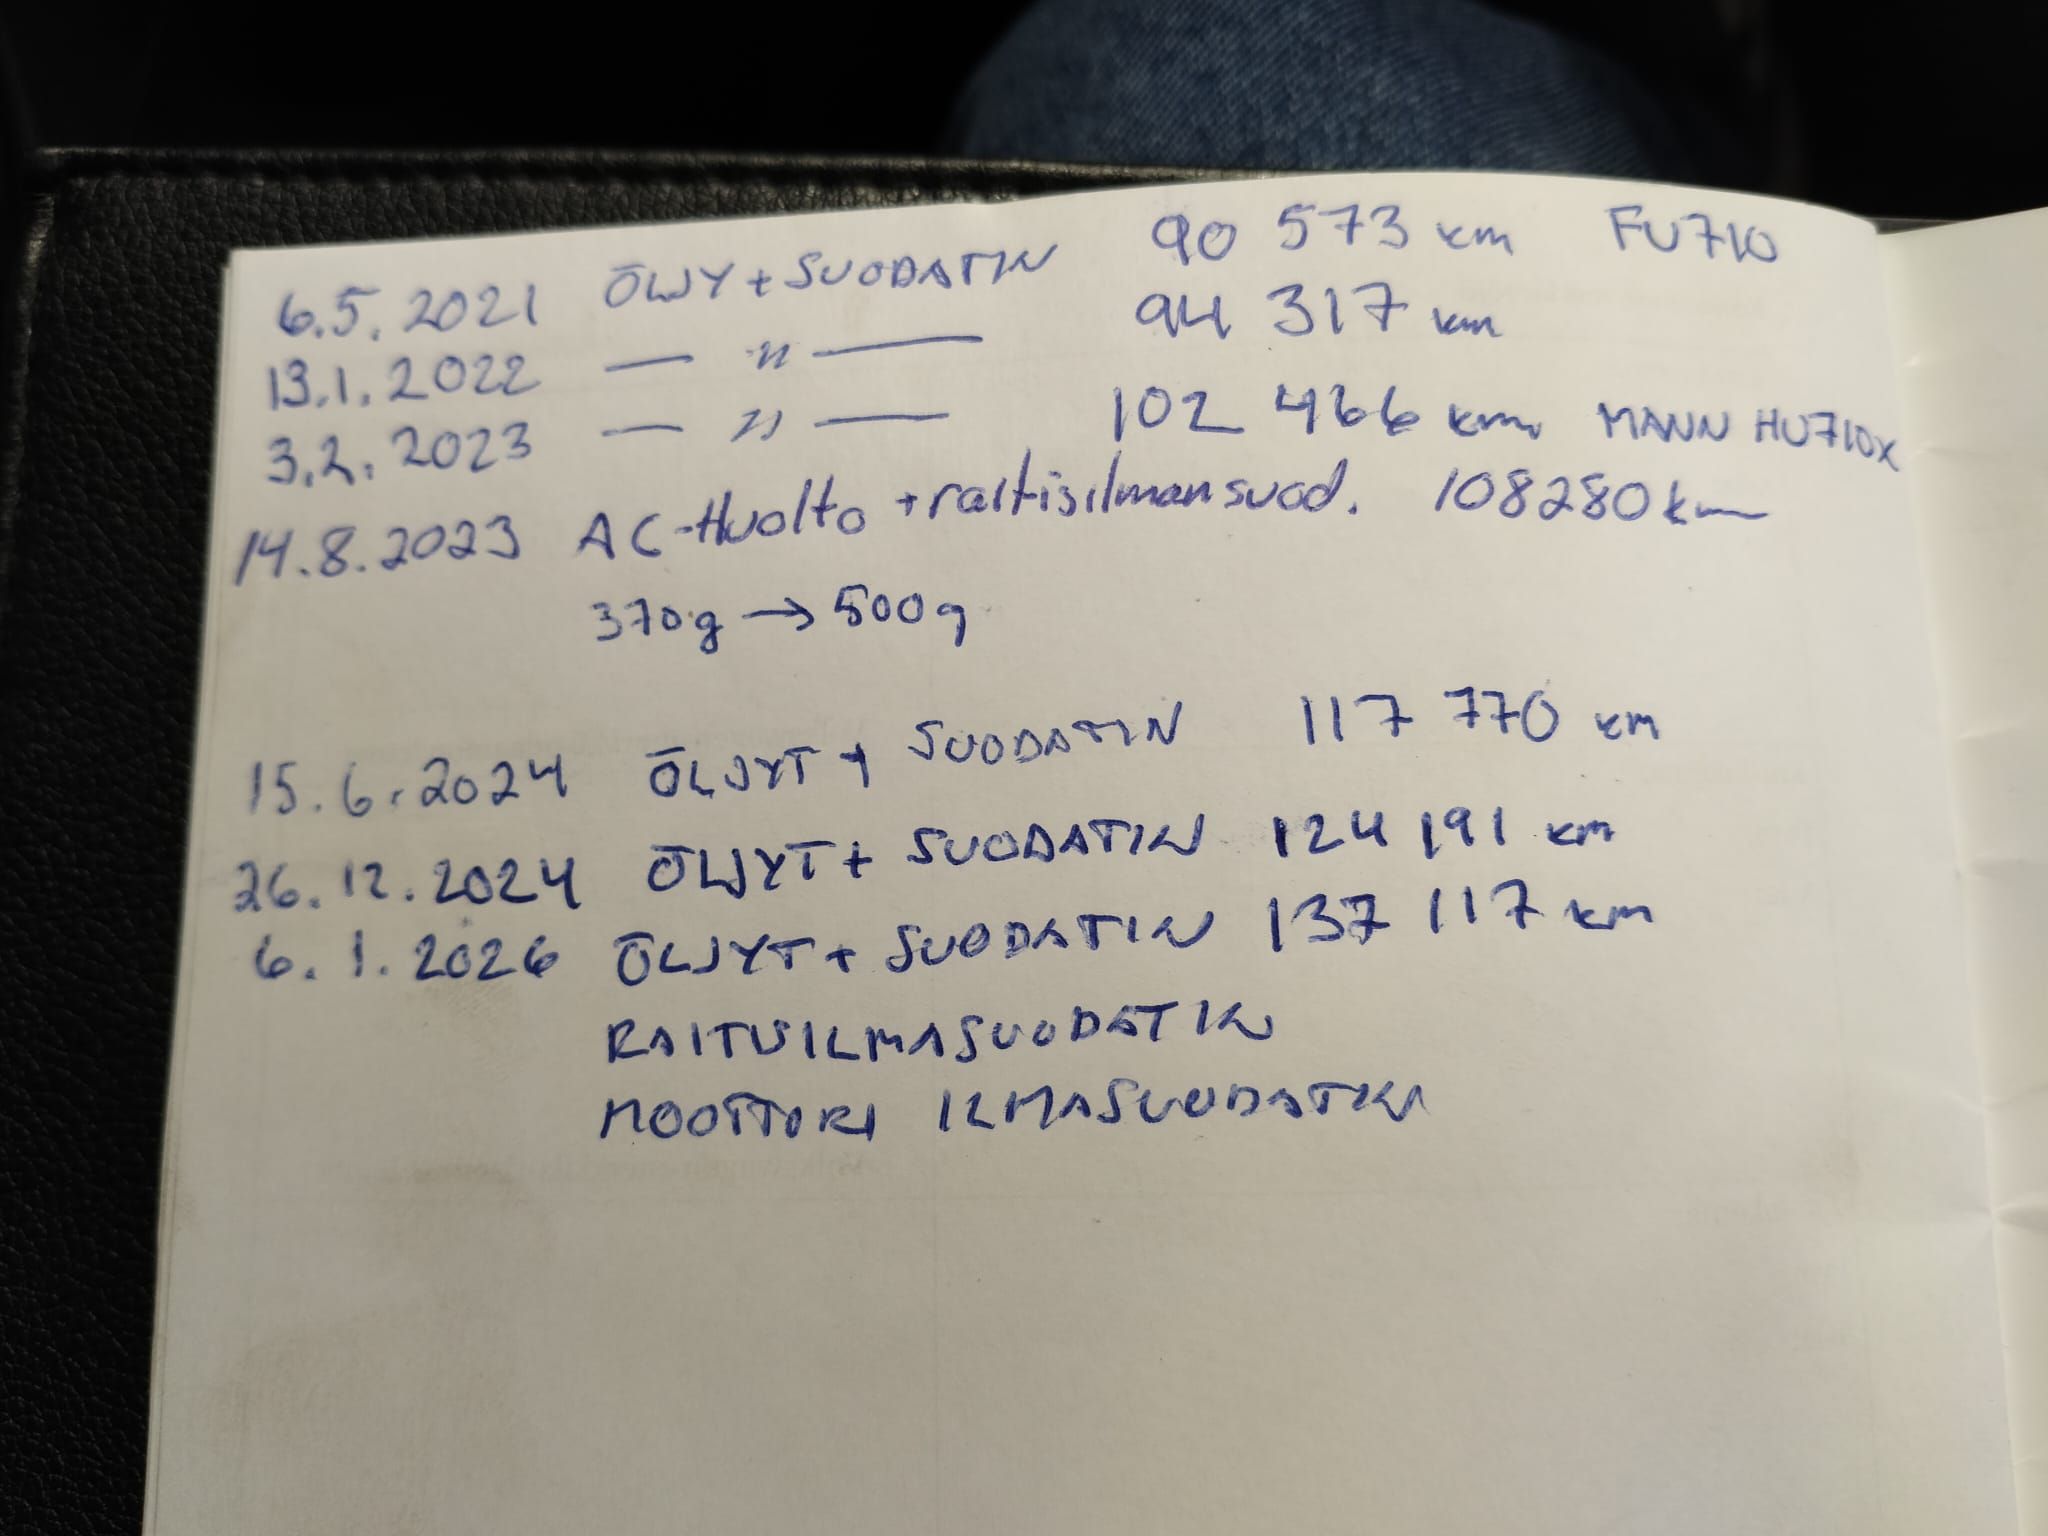 6.5.2021 ÖLJY + SUODATIN 90 573 km FU710
13.1.2022 — " — 94 317 km
3.2.2023 — " — 102 466 km MANN HU710X
14.8.2023 AC-Huolto + raitisilmansuod. 108280 km
370g → 500g
15.6.2024 ÖLJYT + SUODATIN 117 770 km
26.12.2024 ÖLJYT + SUODATIN 124 191 km
6.1.2026 ÖLJYT + SUODATIN 137 117 km
RAITISILMASUODATIN
MOOTTORI ILMASUODATIN